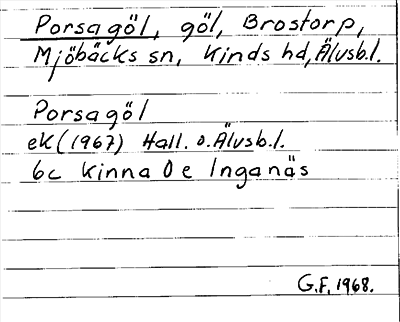 Porsagöl, göl, Brostorp,
Mjöbäcks sn, Kinds hd, Älvsb.l.
Porsagöl
ek (1967) Hall. o. Älvsb.l.
6c Kinna 0 e Inganäs
G.F. 1968.